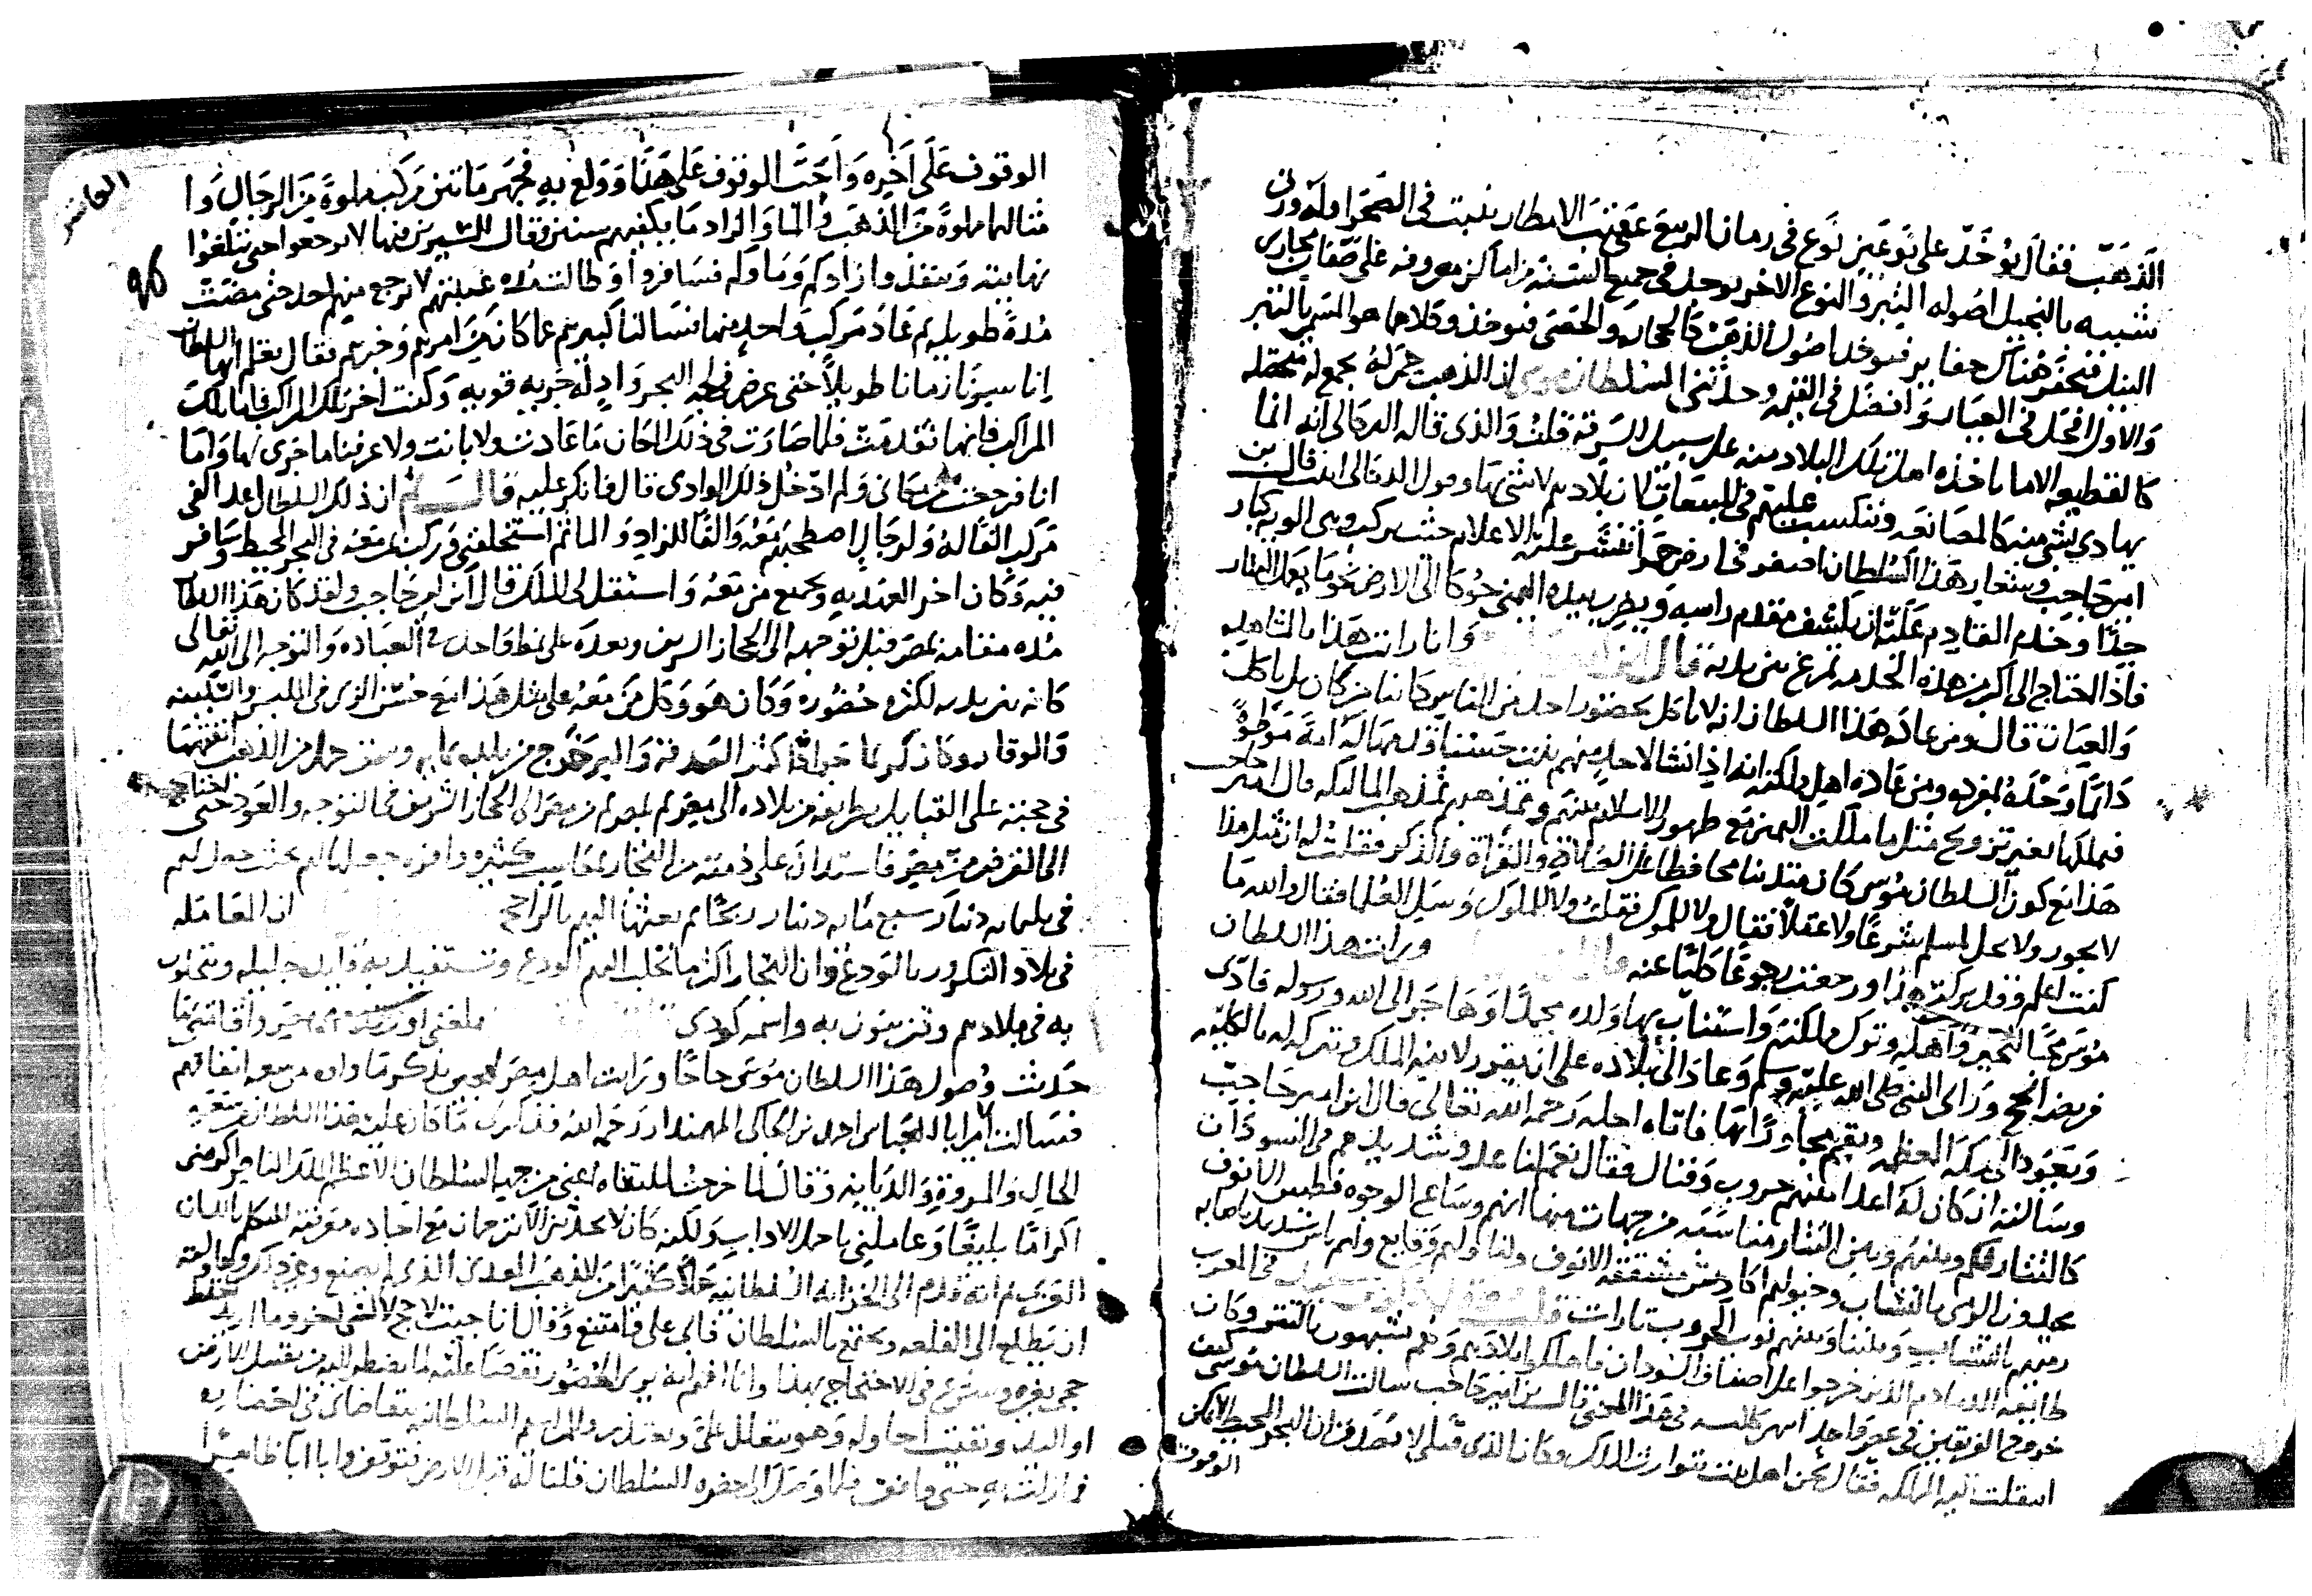 الذهب فقال يوخذ على نوعين نوع في زمان الربيع عقيب الامطار ينبت في الصحرا وله ورق
شبيه بالنجيل اصوله التبر والنوع الاخر يوجد في جميع السنة في اماكن معروفة على ضفاف مجاري
النيل فتحفر هناك حفاير فيوخذ اصول الذهب كالحجارة والحصى فيوخذ وكلاهما هو المسمى بالتبر
والاول افحل في العيار وافضل في القيمة وحدثني السلطان موسى ان الذهب حمى له يجمع له متحصله
كالقطيعة الا ما ياخذه اهل تلك البلاد منه على سبيل السرقة قلت والذي قاله الدكالي انه انما
يهادى بشي منه كالمصانعة ويتكسب عليهم في المبيعات لان بلادهم لا شي بها وقول الدكالي اثبت قال ابن
امير حاجب وشعار هذا السلطان اصفر في ارض حمرا وتنشر عليه الاعلام حيث يركب وهي الوية كبار
جدا وخدم القادم عليه ان يكشف مقدم راسه ويضرب بيده اليمنى جوكا الى الارض نحو ما يفعل التتار
فاذا احتاج الى اكبر من هذه الخدمة تمرغ بين يديه قال ابن وانا رايت هذا بالمشاهدة
والعيان قال ومن عادة هذا السلطان انه لا ياكل بحضور احد من الناس كاينا من كان بل ياكل
دايما وحده بمفرده ومن عادة اهل مملكته انه اذا نشا لاحد منهم بنت حسنا قدمها له امة موطوة
فيملكها بغير تزويج مثل ما ملكت اليمين مع ظهور الاسلام بينهم وتمذهبهم بمذهب المالكية قال امير حاجب
هذا مع كون السلطان موسى كان متدينا محافظا على الصلاة والقراة والذكر فقلت له ان مثل هذا
لا يجوز ولا يحل لمسلم شرعا ولا عقلا فقال ولا للملوك فقلت ولا للملوك وسل العلما فقال والله ما
كنت اعلم وقد تركت هذا ورجعت رجوعا كليا عنه قال ورايت هذا السلطان
موسى محبا للخير واهله وترك مملكته واستناب بها ولده محمدا وهاجر الى الله ورسوله فادى
فريضة الحج وزار النبي صلى الله عليه وسلم وعاد الى بلاده على ان يقرر لابنه الملك ويتركه له بالكلية
ويعود الى مكة المعظمة ويقيم مجاورا بها فاتاه اجله رحمه الله تعالى قال ابن امير حاجب
وسالته ان كان له اعدا بينهم حروب وقتال فقال نعم لنا عدو شديد هم في السودان
كالتتار لكم وبينهم وبين التتار مناسبة من جهات منها انهم وساع الوجوه فطس الانوف
يجيدون الرمي بالنشاب وخيولهم اكاديش مشققة الانوف ولنا ولهم وقايع ولهم باس شديد باصابة
رميهم بالنشاب وبيننا وبينهم نوب الحروب تارات قلت في المغرب
طايفة الدمادم الذين خرجوا على اصناف السودان فاهلكوا بلادهم وهم يشبهون بالتتر وكان
خروج الفريقين في عصر واحد قال ابن امير حاجب سالت السلطان موسى كيف
انتقلت اليه المملكة فقال نحن اهل بيت نتوارث الملك وكان الذي قبلي لا يصدق ان البحر المحيط لا يمكن
الوقوف
العاشر
96
الوقوف على اخره واحب الوقوف على هذا وولع به فجهز ماتين مركب مملوة من الرجال و
مثالها مملوة من الذهب والما والزاد ما يكفيهم سنين وقال للمسيرين فيها لا ترجعوا حتى تبلغوا
نهايته وينفد ازوادكم وماوكم فسافروا وطالت مدة غيبتهم لا يرجع منهم احد حتى مضت
مدة طويلة ثم عاد مركب واحد منها فسالنا كبيرهم عما كان من امرهم وخبرهم فقال تعلم ايها السلطان
انا سيرنا زمانا طويلا حتى عرض في لجة البحر واد له جرية قوية وكنت اخر تلك المراكب فاما تلك
المراكب فانها تقدمت فلما صارت في ذلك المكان ما عادت ولا بانت ولا عرفنا ما جرى لها واما
انا فرجعت من مكاني ولم ادخل ذلك الوادي قال فانكر عليه قال ثم ان ذلك السلطان اعد الفي
مركب الفا له ولرجال اصطحبهم معه والفا للزاد والما ثم استخلفني وركب بمن معه في البحر المحيط وسافر
فيه وكان اخر العهد به وبجميع من معه واستقل لي الملك قال ابن امير حاجب ولقد كان هذا السلطان
مدة مقامه بمصر قبل توجهه الى الحجاز الشريف وبعده على نمط واحد في العبادة والتوجه الى الله تعالى
كانه بين يديه لكثرة حضوره وكان هو وكل من معه على مثل هذا مع حسن الزي في الملبس والسكينة
والوقار وكان كريما جوادا كثير الصدقة والبر خرج من بلده بماية وسق حمل من الذهب انفقها
في حجته على القبايل بطريقه من بلاده الى مصر ثم بمصر ثم من مصر الى الحجاز الشريف في التوجه والعود حتى احتاج
الى القرض في مصر فاستدان على ذمته من التجار بمكاسب كثيرة وافرة جعلها لهم بحيث حصل لهم
في ثلثماية دينار سبع ماية دينار ربحا ثم بعثها اليهم بالراجح ان المعاملة
في بلاد التكرور بالودع وان التجار اكثر ما تجلب اليهم الودع وتستفيد به فايدة جليلة
به في بلادهم وتتزينون به واسمه كودي
حدثت وصول هذا السلطان موسى حاجا ورايت اهل مصر لهجين بذكر ما راوه من سعة انفاقهم
فسالت الامير ابا العباس احمد بن الحاكي المهمندار رحمه الله فذكر لي ما كان عليه هذا السلطان من سعة
الحال والمروة والديانة وقال لما خرجت للتقاه اعني من جهة السلطان الاعظم الملك الناصر اكرمني
اكراما بليغا وعاملني باجمل الاداب ولكنه كان لا يحدثني الا بترجمان مع اجادة معرفته للتكلم باللسان
العربي ثم انه قدم الى الخزانة السلطانية حملا كثيرا من الذهب المعدني الذي لم يصنع وغير ذلك وحاولته
ان يطلع الى القلعة ويجتمع بالسلطان فابى علي وامتنع وقال انا جيت لاحج لا لشي اخر وما اريد اخلط
حجي بغيره وشرع في الاحتجاج بهذا وانا افهم انه يرى الحضور نقصا عليه لما يضطر اليه من تقبيل الارض
او اليد وبقيت احاوله وهو يتعلل علي ويعتذر والمراسم السلطانية تتقاضاني في احضاره
فما زلت به حتى وافق فلما وصل الى الحضرة السلطان قلنا له قبل الارض فتوقف وابا ابا ظاهرا